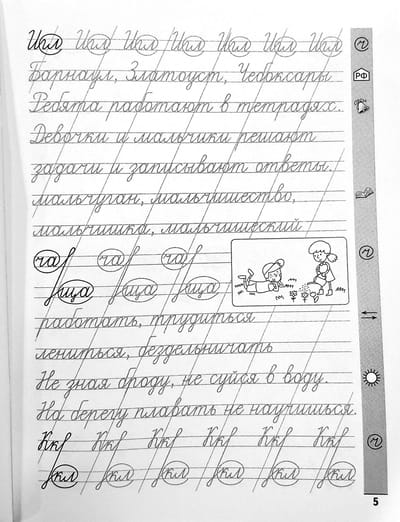 Игл Игл Игл Игл Игл Игл Игл
Барнаул, Златоуст, Чебоксары
Ребята работают в тетрадях.
Девочки и мальчики решают
задачи и записывают ответы.
мальчуган, мальчишество,
мальчишка, мальчишеский
ча ча ча
ща ща ща
работать, трудиться
лениться, бездельничать
Не зная броду, не суйся в воду.
На берегу плавать не научишься.
Кк Кк Кк Кк Кк Кк
кл кл кл кл кл кл
РФ
5